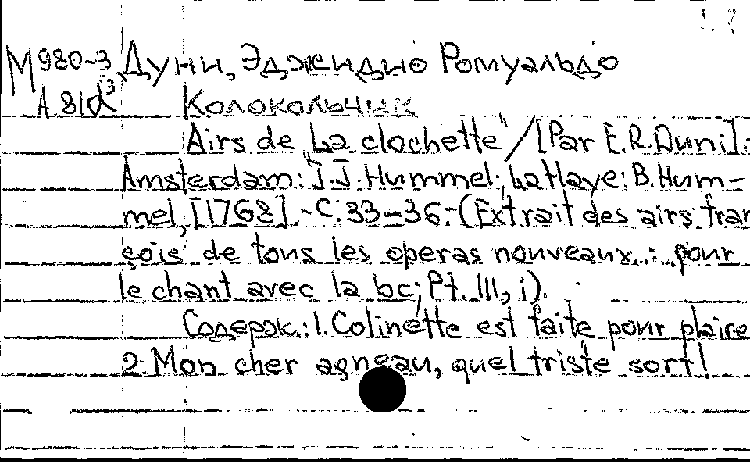 M980-3 Дуни, Эджидио Ромуальдо
A.81d³ Колокольчик
Airs de "La clochette" / [Par E.R.Duni].
Amsterdam: J.J.Hummel; La Haye: B.Hum-
mel, [1768]. - С. 33-36. - (Extrait des airs fran
çois de tous les operas nouveaux..: pour
le chant avec la bc; Pt. III, i).
Содерж.: 1. Colinette est faite pour plaire
2 Mon cher agneau, quel triste sort!